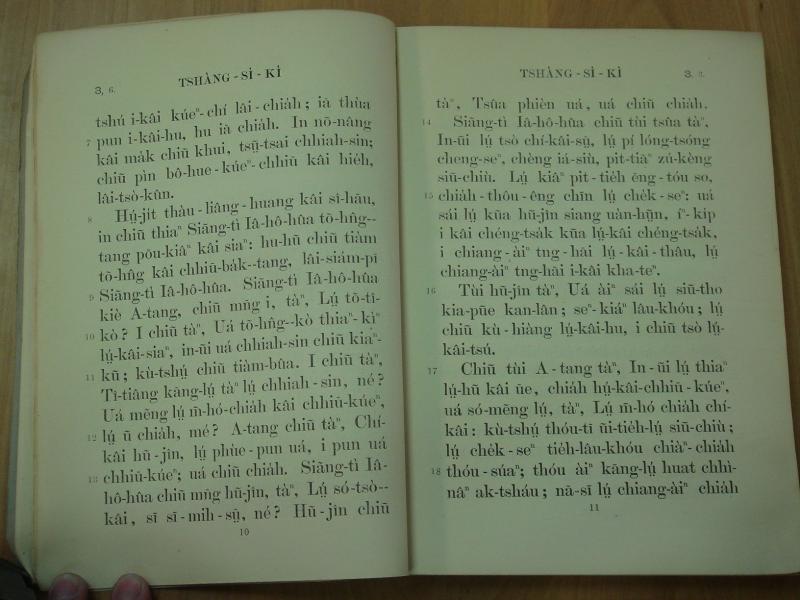 3, 6.
TSHÀNG-SÌ-KÌ
tshú i-kâi kúeⁿ-chí lâi-chiah; iā thùa
7 pun i-kâi-hu, hu iā chiah. In nō-nâng
kâi ma̍k chiū khui, tsṳ̄-tsai chhiah-sin;
chiū pìn bô-hue-kúeⁿ-chhiū kâi hie̍h,
lâi-tsò-kûn.
8 Hṳ́-ji̍t thàu-liâng-huang kâi sî-hāu,
in chiū thiaⁿ Siāng-tì Iâ-hô-hûa tō-hn̂g--
tang pōu-kiâⁿ kâi siaⁿ: hu-hū chiū tiàm
tō-hn̂g kâi chhiū-ba̍k--tang, lâi-siám-pī
9 Siāng-tì Iâ-hô-hûa. Siāng-tì Iâ-hô-hûa
kiè A-tang, chiū mn̄g i, tàⁿ, Lṳ́ tō-tî-
10 kò? I chiū tàⁿ, Uá tō-hn̂g--kò thiaⁿ-kìⁿ
lṳ́-kâi-siaⁿ, in-ūi uá chhiah-sin chiū kiaⁿ-
11 kū; kù-tshṳ́ chiū tiàm-bûa. I chiū tàⁿ,
Tî-tiâng kāng-lṳ́ tàⁿ lṳ́ chhiah-sin, né?
Uá mēng lṳ́ m̄-hó-chia̍h kâi chhiū-kúeⁿ,
12 lṳ́ ū chia̍h, mé? A-tang chiū tàⁿ, Chí-
kâi hū-jîn, lṳ́ phùe-pun uá, i pun uá
13 chhiū-kúeⁿ; uá chiū chia̍h. Siāng-tì Iâ-
hô-hûa chiū mn̄g hū-jîn, tàⁿ, Lṳ́ só-tsò--
kâi, sĭ sĭ-mih-sṳ̄, né? Hū-jîn chiū
10
TSHÀNG-SÌ-KÌ
3.
tàⁿ, Tsûa phièn uá, uá chiū chia̍h.
14 Siāng-tì Iâ-hô-hûa chiū tùi tsûa tàⁿ,
In-ūi lṳ́ tsò chí-kâi-sṳ̄, lṳ́ pí lóng-tsóng
cheng-seⁿ, chèng iá-siù, pit-tiāⁿ zû-kèng
siū-chiù. Lṳ́ kiâⁿ pit-tie̍h ēng-tóu so,
15 chia̍h-thôu-êng chīn lṳ́ che̍k-seⁿ: uá
sái lṳ́ kūa hū-jîn siang uàn-hṳ̄n, íⁿ-ki̍p
i kâi chéng-tsa̍k kūa lṳ́-kâi chéng-tsa̍k,
i chiang-àiⁿ tng-hāi lṳ́-kâi-thâu, lṳ́
chiang-àiⁿ tng-hāi i-kâi kha-teⁿ.
16 Tùi hū-jîn tàⁿ, Uá àiⁿ sái lṳ́ siū-tho
kia-pūe kan-lân; seⁿ-kiáⁿ lâu-khóu; lṳ́
chiū kù-hiàng lṳ́-kâi-hu, i chiū tsò lṳ́-
kâi-tsú.
17 Chiū tùi A-tang tàⁿ, In-ūi lṳ́ thiaⁿ
lṳ́-hū kâi ūe, chia̍h hṳ́-kâi-chhiū-kúeⁿ,
uá só-mēng lṳ́, tàⁿ, Lṳ́ m̄-hó chia̍h chí-
kâi: kù-tshṳ́ thóu-tī ūi-tie̍h-lṳ́ siū-chiù;
lṳ́ che̍k-seⁿ tie̍h-lâu-khóu chiàⁿ-chia̍h
18 thóu-súaⁿ; thóu àiⁿ kāng-lṳ́ huat chhì-
nâⁿ ak-tsháu; nā-sĭ lṳ́ chiang-àiⁿ chia̍h
11